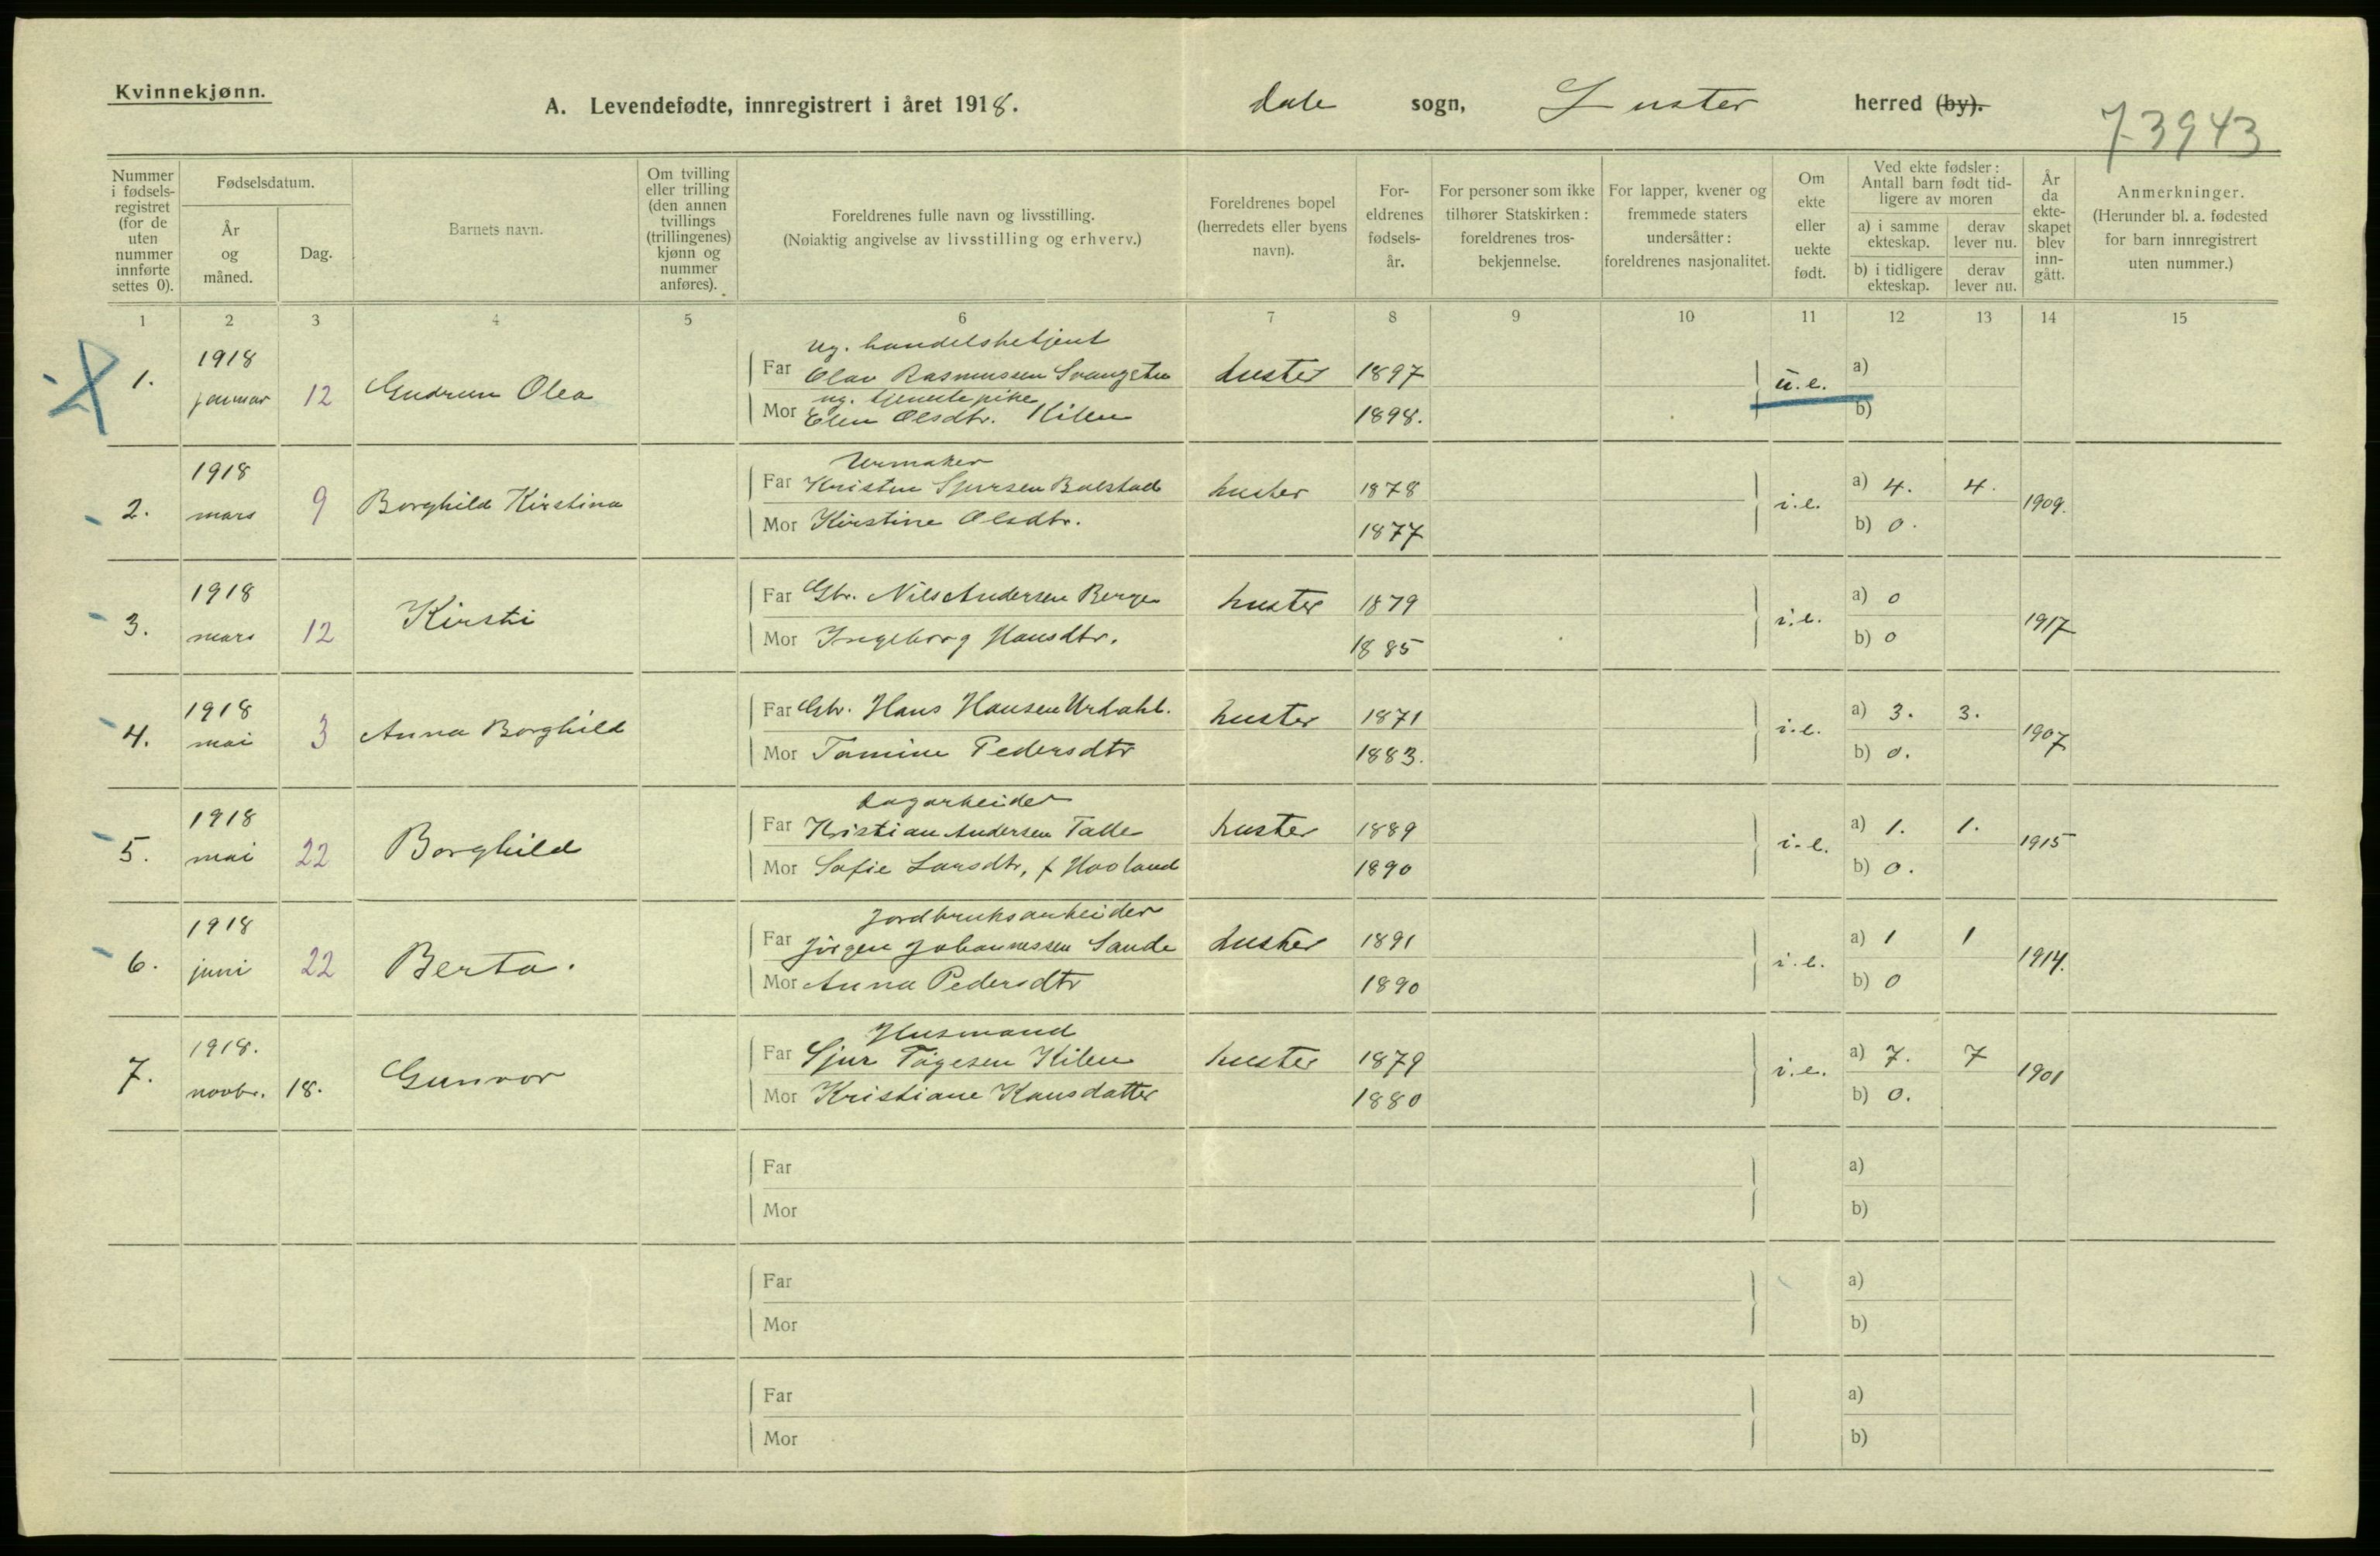 Kvinnekjønn.
A. Levendefødte, innregistrert i året 1918. Dale sogn, Luster herred (by).
73943
Nummer i fødsels-registret (for de uten nummer innførte settes 0).
Fødselsdatum.
År og måned.
Dag.
Barnets navn.
Om tvilling eller trilling (den annen tvillings (trillingenes) kjønn og nummer anføres).
Foreldrenes fulle navn og livsstilling.
(Nøiaktig angivelse av livsstilling og erhverv.)
Foreldrenes bopel (herredets eller byens navn).
For-eldrenes fødsels-år.
For personer som ikke tilhører Statskirken: foreldrenes tros-bekjennelse.
For lapper, kvener og fremmede staters undersåtter: foreldrenes nasjonalitet.
Om ekte eller uekte født.
Ved ekte fødsler: Antall barn født tid-ligere av moren
a) i samme ekteskap.
derav lever nu.
b) i tidligere ekteskap.
derav lever nu.
År da ekte-skapet blev inn-gått.
Anmerkninger.
(Herunder bl. a. fødested for barn innregistrert uten nummer.)
1 2 3 4 5 6 7 8 9 10 11 12 13 14 15
ug. handelsbetjent
1. 1918 januar 12 Gudrun Olea Far Olav Rasmussen Luster 1897 u.e. a)
ug. tjenestepike
Mor Elen Olsdtr. Kilen 1898. b)
Urmaker
2. 1918 mars 9 Borghild Kirstina Far Kristen Sjursen Bolstad Luster 1878 i.e. a) 4. 4. 1909.
Mor Kirstine Olsdtr. 1877 b) 0.
3. 1918 mars 12 Kirsti Far Gbr. Nils Andersen Berge Luster 1879 i.e. a) 0 1917
Mor Ingeborg Hansdtr. 1885 b) 0
4. 1918 mai 3 Anna Borghild Far Gbr. Hans Hansen Urdahl. Luster 1871 i.e. a) 3. 3. 1907
Mor Tomine Pedersdtr 1883. b) 0.
Dagarbeider
5. 1918 mai 22 Borghild Far Kristian Andersen Talle Luster 1889 i.e. a) 1. 1. 1915
Mor Sofie Larsdtr, f Haoland 1890 b) 0.
Jordbruksarbeider
6. 1918 juni 22 Berta. Far Jørgen Johannessen Sande Luster 1891 i.e. a) 1 1 1914.
Mor Anna Pedersdtr 1890 b) 0
Husmand
7. 1918. novbr. 18. Gunvor Far Sjur Tøgesen Kilen Luster 1879 i.e. a) 7. 7 1901
Mor Kristiane Hansdatter 1880 b) 0.
Far a)
Mor b)
Far a)
Mor b)
Far a)
Mor b)